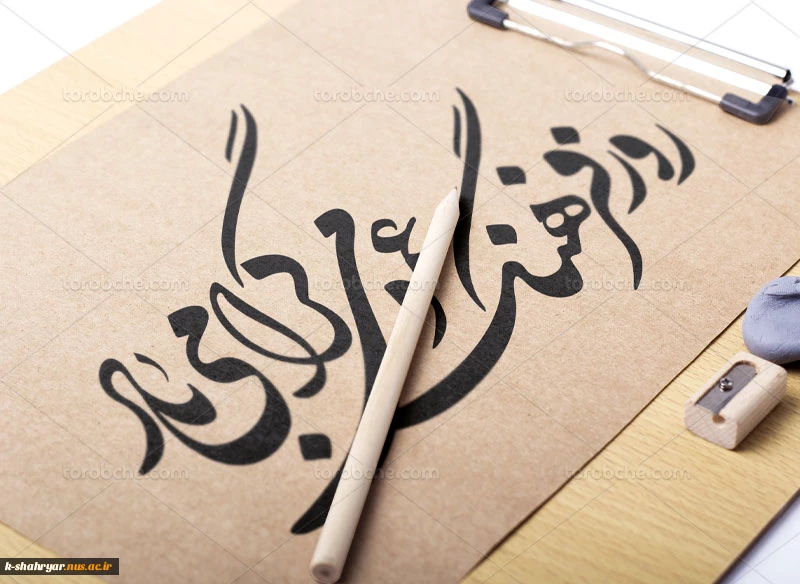 روز فرهنگ عمومی گرامی باد
torobche.com torobche.com torobche.com
torobche.com torobche.com torobche.com
torobche.com torobche.com torobche.com
k-shahryar.nus.ac.ir